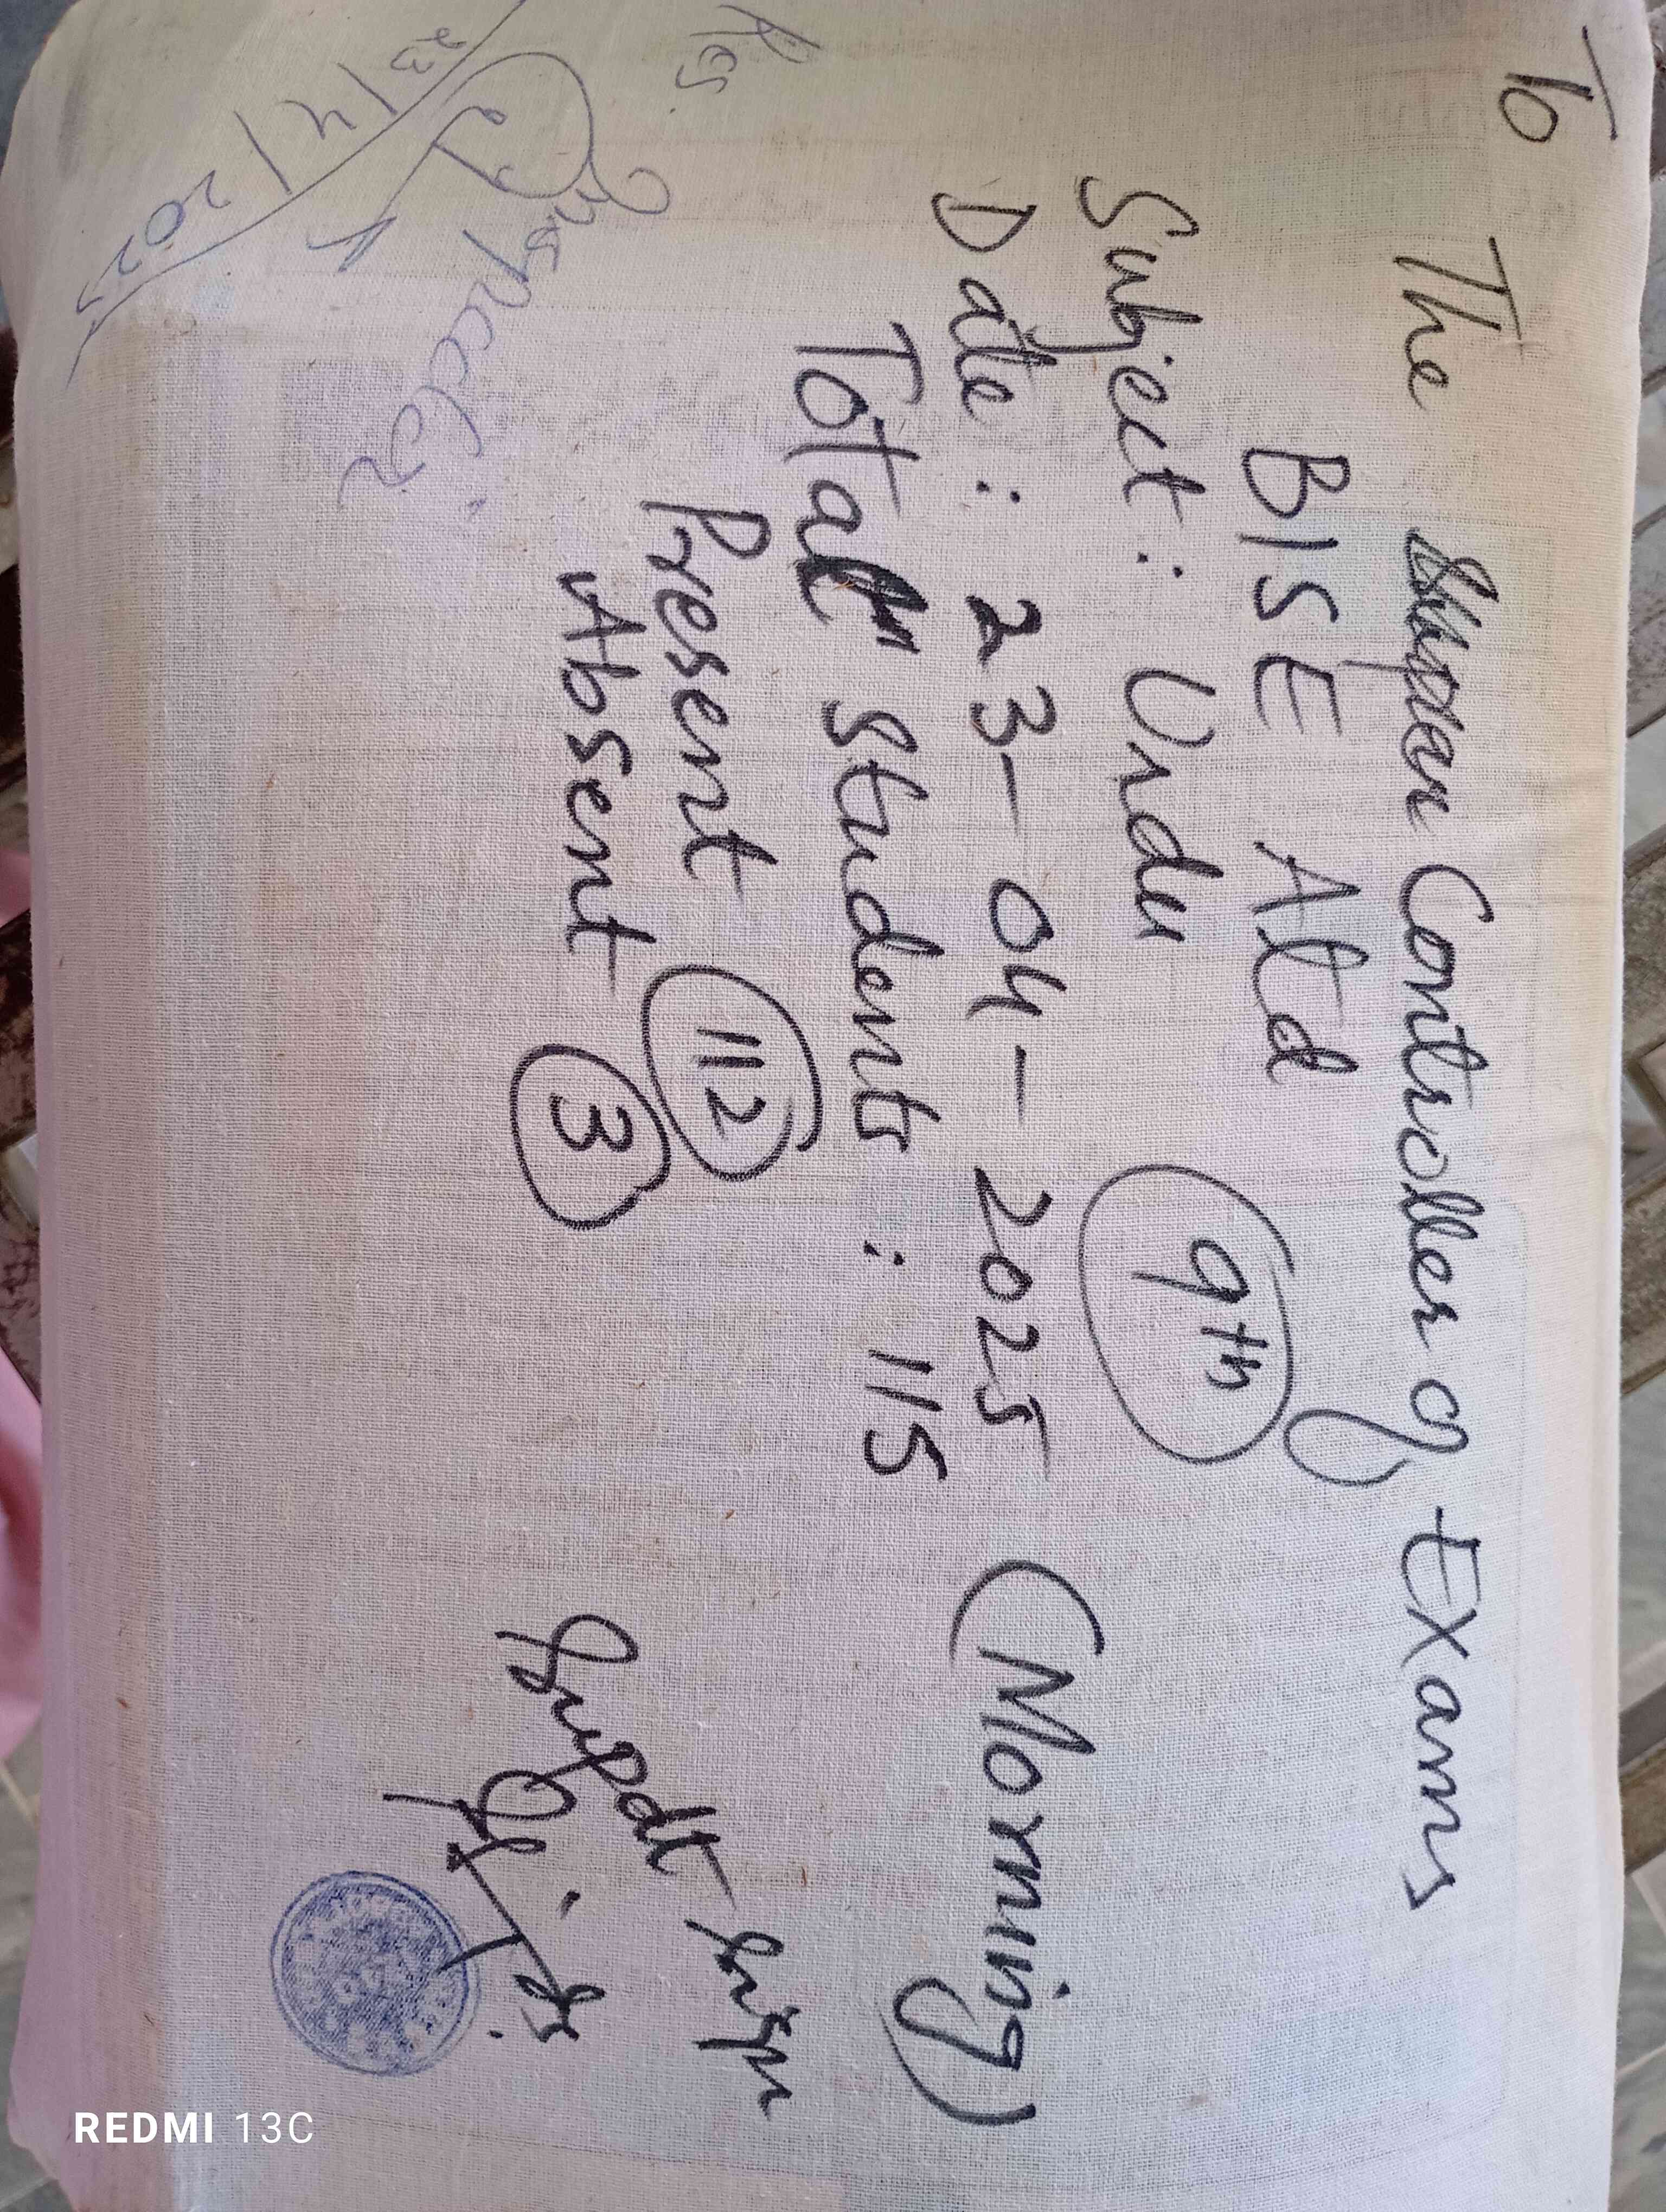 To
The Controller of Exams
BISE Atd
Subject: Urdu 9th
Date: 23-04-2025 (Morning)
Total Students: 115
Present 112
Absent 3
Supdt sign
Inspector
23/4/2025
REDMI 13C